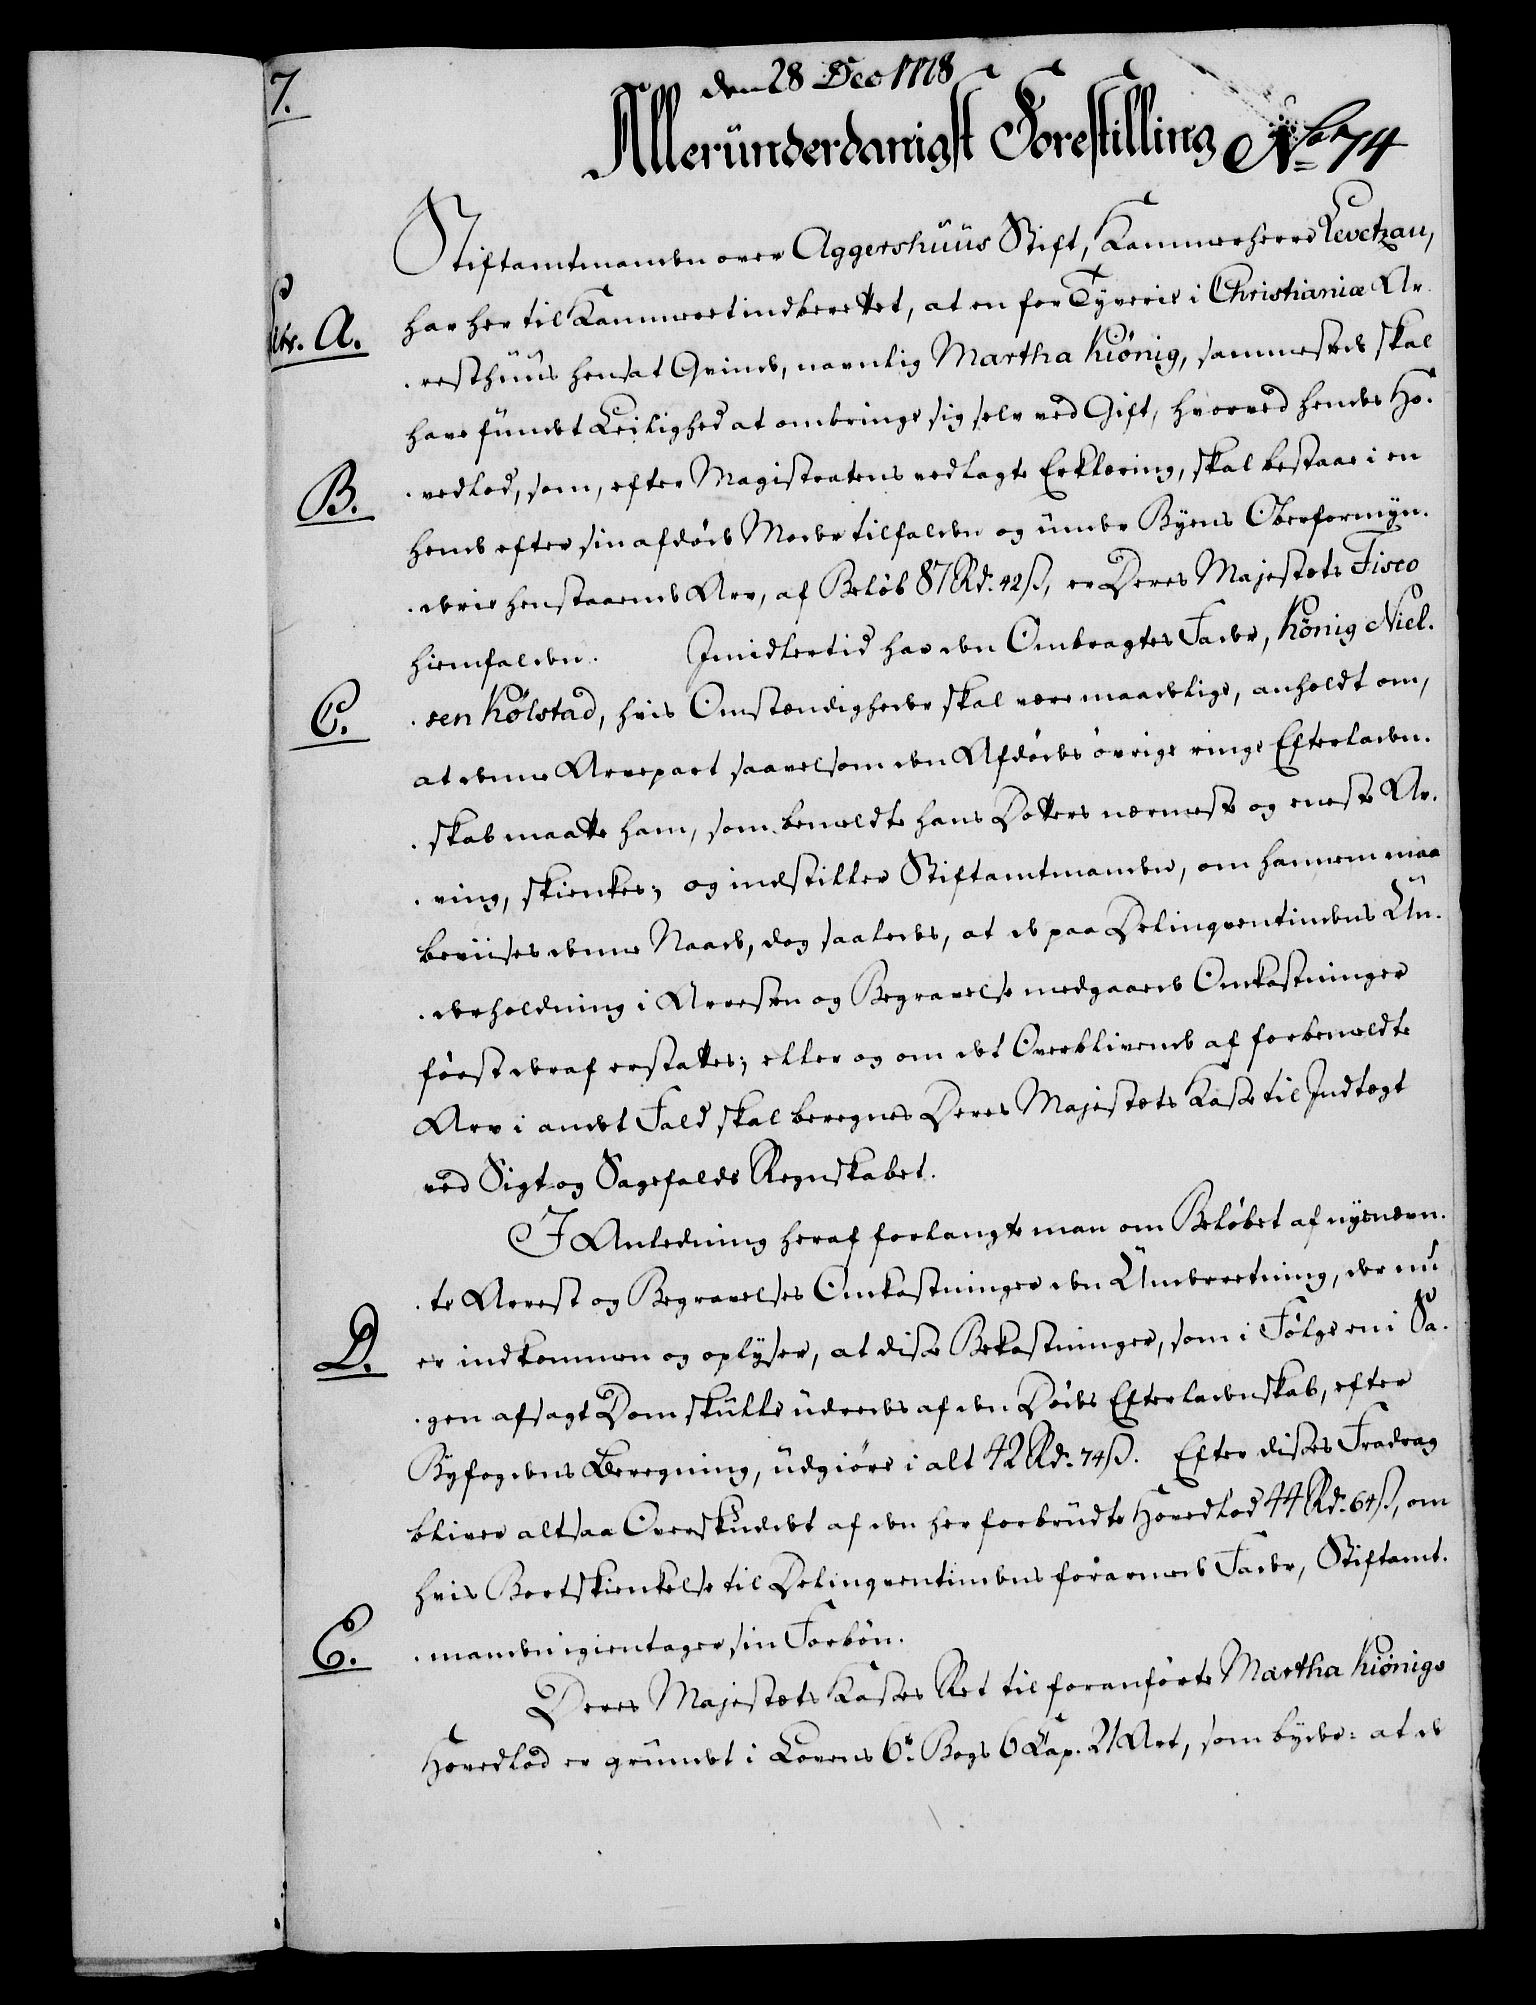 7.
den 28 Dec 1778
Alleründerdanigst Forestilling No 74
Stiftamtmanden over Aggershüüs Stift, Kammerherre Levetzau,
Litr. A.
har her til Kammeret indberettet, at en for Tyverie i Christianiæ Ar-
-resthüüs hensat Qvinde, navnlig Martha Kiönig, sammesteds skal
have fündet Leilighed at ombringe sig selv ved Gift, hvorved hendes Ho-
B.
-vedlod, som, efter Magistratens vedlagte Erklæring, skal bestaae i en
hende efter sin afdöde Moder tilfalden og ünder Byens Oberformyn-
-derie henstaaende Arv, af Belöb 87 Rd. 42 ß, er Deres Majestæts Fisco
hiemfalden. Imidlertid har den Ombragtes Fader, König Niel-
C.
-sen Kölstad, hvis Omstændigheder skal være maadelige, anholdt om,
at denne Arvepart saavelsom den Afdödes övrige ringe Efterladen-
-skab maatte ham, som bemeldte hans Dotters nærmeste og eneste Ar-
-ving, skienkes; og indstiller Stiftamtmanden, om hannem maa
beviises denne Naade, dog saaledes, at de paa Delinqventindens Ün-
-derholdning i Arresten og Begravelse medgaaede Omkostninger
först deraf erstattes; eller og om det Overblivende af forbemeldte
Arv i andet Fald skal beregnes Deres Majestæts Kasse til Indtægt
ved Sigt og Sagefalds Regnskabet.
I Anledning heraf forlangte man om Belöbet af nysnævn-
-te Arrest og Begravelses Omkostninger den Ünderretning, der nü
D.
er indkommen og oplyser, at disse Bekostninger, som i Fölge en i Sa-
-gen afsagt Dom skülle üdredes af den Dödes Efterladenskab, efter
Byfogdens Beregning, üdgiöre i alt 42 Rd. 74 ß. Efter disses Fradrag
bliver altsaa Overskuddet af den her forbrüdte Hovedlod 44 Rd. 64 ß, om
hvis Bortskienkelse til Delinqventindens forarmede Fader, Stiftamt-
E.
-manden igientager sin Forbön.
Deres Majestæts Kasses Ret til foranförte Martha Kiönigs
Hovedlod er gründet i Lovens 6te Bogs 6 Kap. 21 Art, som byder: at de